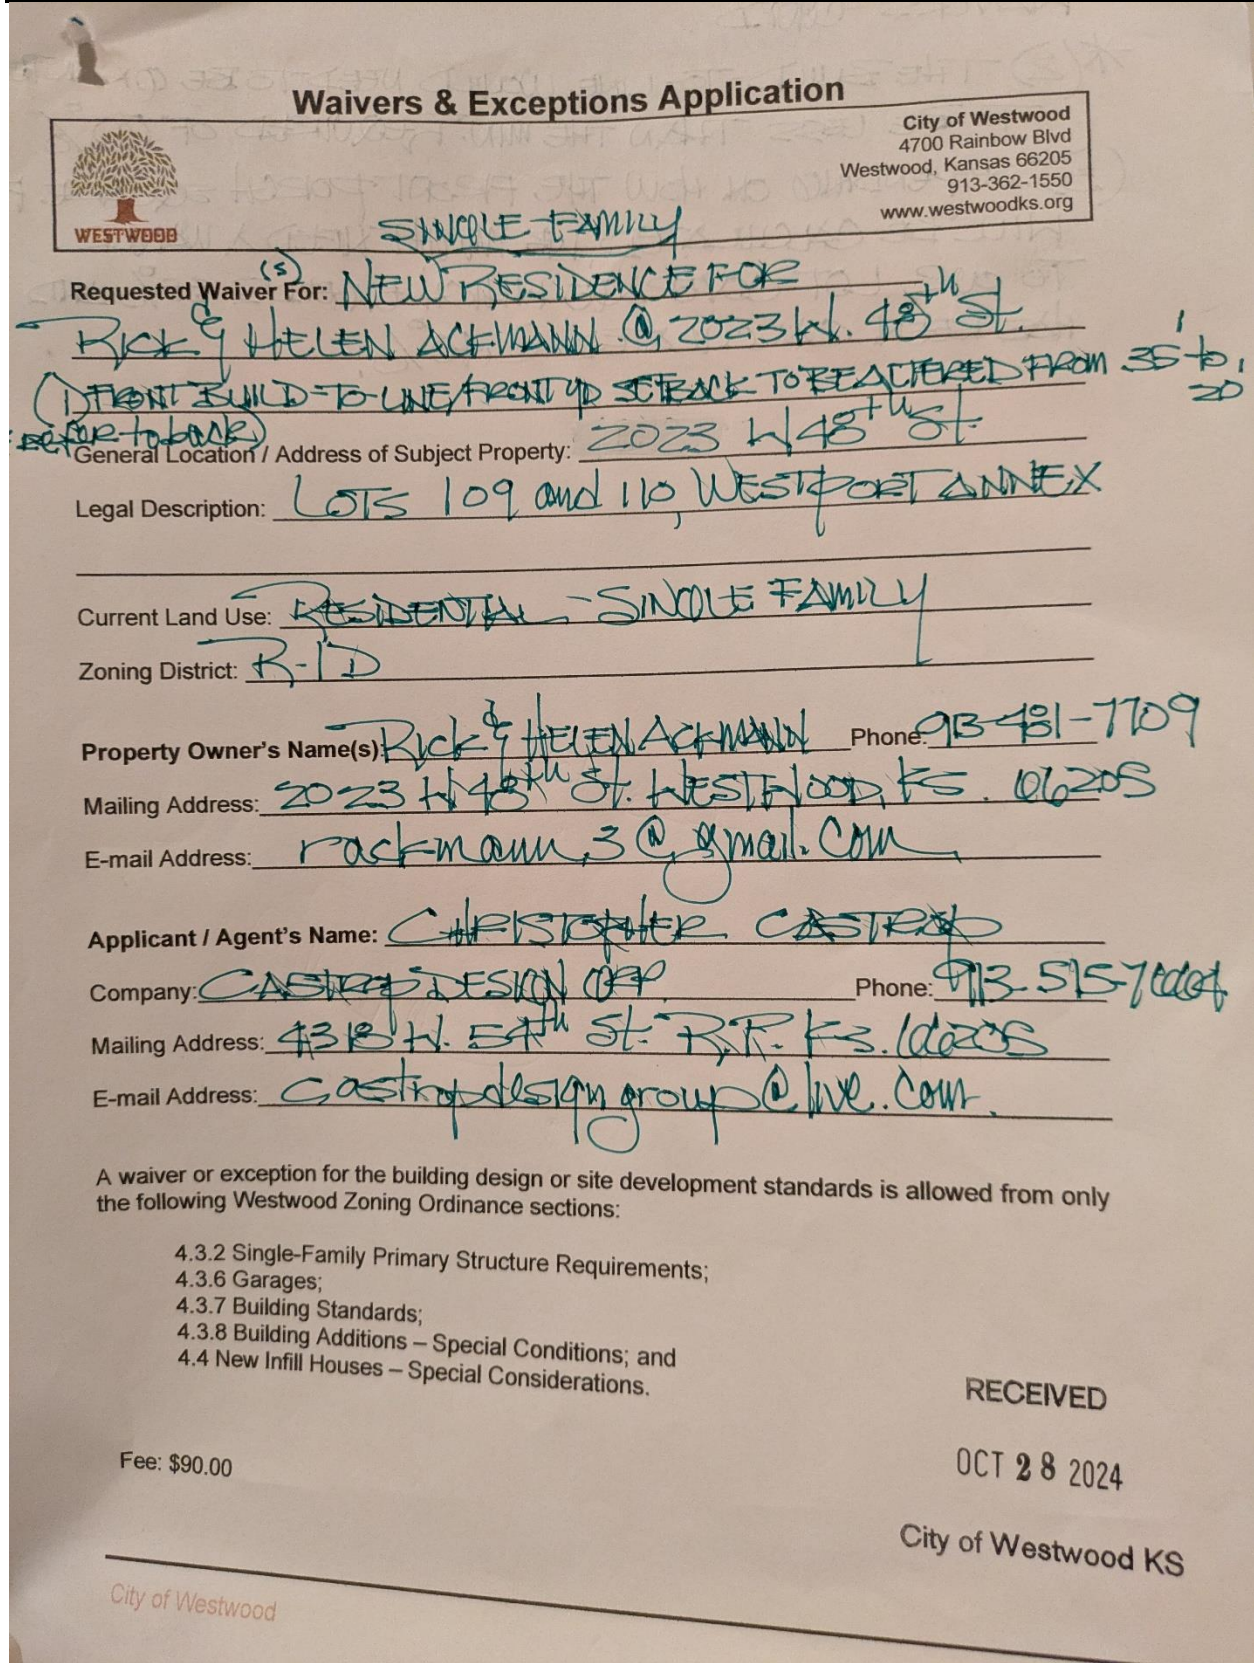 Waivers & Exceptions Application
City of Westwood
4700 Rainbow Blvd
Westwood, Kansas 66205
913-362-1550
www.westwoodks.org
WESTWOOD
SINGLE FAMILY
Requested Waiver(s) For: NEW RESIDENCE FOR
RICK & HELEN ACKMANN @ 2023 W. 48th St.
(1) FRONT BUILD-TO-LINE/FRONT YD SETBACK TO BE ALTERED FROM 35' to 20'
refer to back)
General Location / Address of Subject Property: 2023 W 48th St.
Legal Description: LOTS 109 and 110, WESTPORT ANNEX
Current Land Use: RESIDENTIAL - SINGLE FAMILY
Zoning District: R-1D
Property Owner's Name(s): RICK & HELEN ACKMANN Phone: 913-481-7709
Mailing Address: 2023 W 48th St. WESTWOOD, KS. 66205
E-mail Address: rackmann3@gmail.com
Applicant / Agent's Name: CHRISTOPHER CASTROP
Company: CASTROP DESIGN GRP. Phone: 913-515-
Mailing Address: 4318 W. 54th St. R.P. Ks. 66205
E-mail Address: castropdesigngroup@live.com.
A waiver or exception for the building design or site development standards is allowed from only
the following Westwood Zoning Ordinance sections:
4.3.2 Single-Family Primary Structure Requirements;
4.3.6 Garages;
4.3.7 Building Standards;
4.3.8 Building Additions – Special Conditions; and
4.4 New Infill Houses – Special Considerations.
RECEIVED
Fee: $90.00
OCT 28 2024
City of Westwood KS
City of Westwood